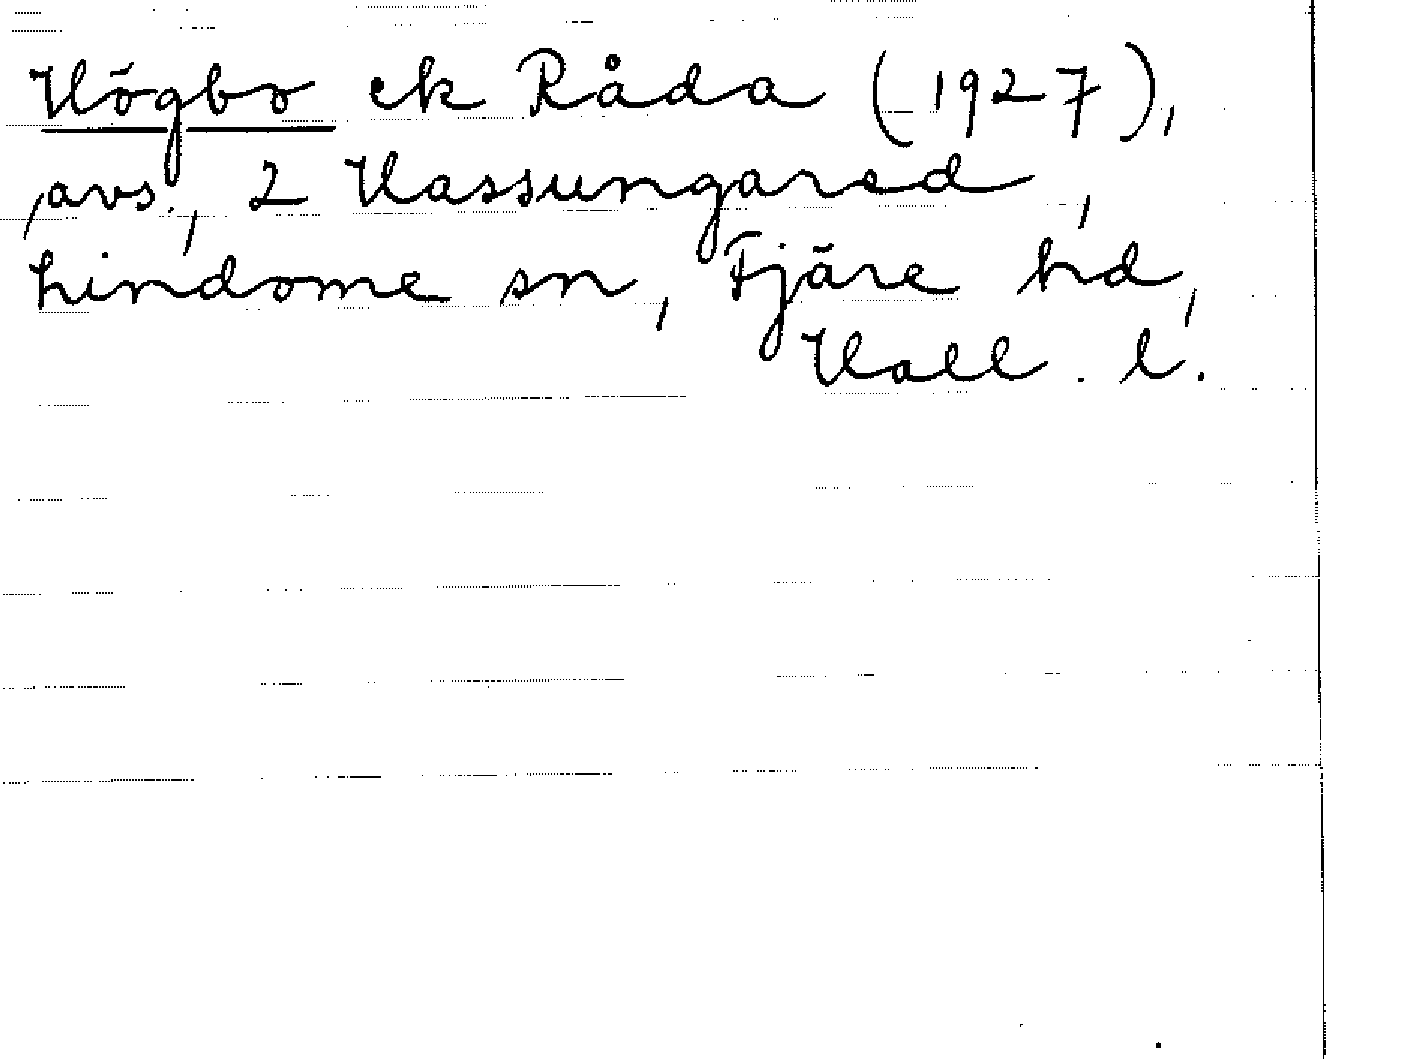 Högbo ek Råda (1927),
avs., 2 Hassungared,
Lindome sn, Fjäre hd,
Hall. l.